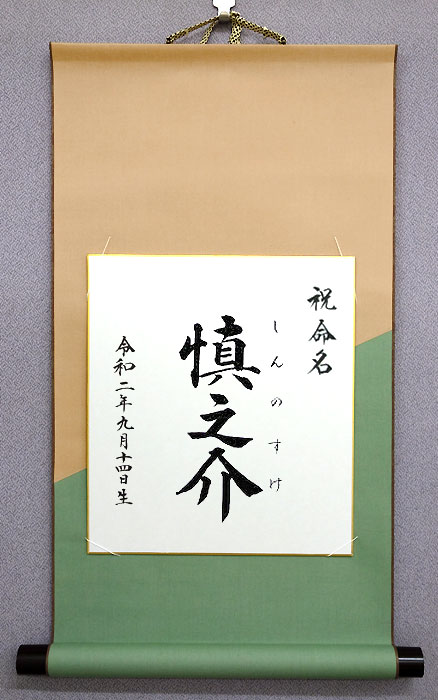 祝命名
しんのすけ
慎之介
令和二年九月十四日生